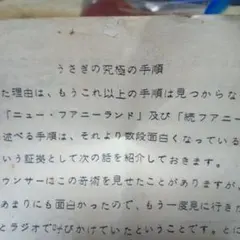 うさぎの究極の手順
た理由は、もうこれ以上の手順は見つからな
「ニュー・ファニーランド」及び「続ファニー
述べる手順は、それより数段面白くなっている
いう証拠として次の話を紹介しておきます。
ウンサーはこの奇術を見せたことがありますが、
あまりにも面白かったので、もう一度見に行きか
とラジオで呼びかけていたということです。と